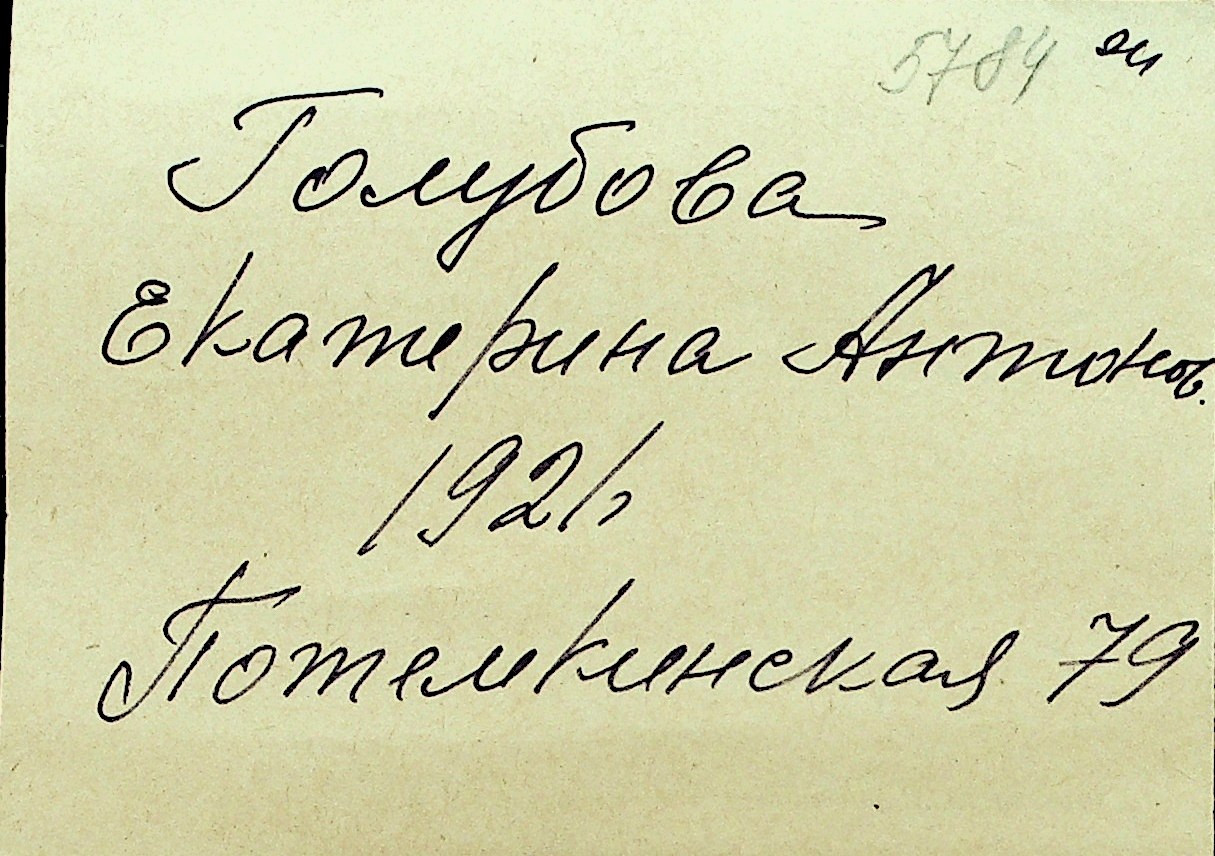 5784
Голубова
Екатерина Антонов.
1921
Потемкинская 79